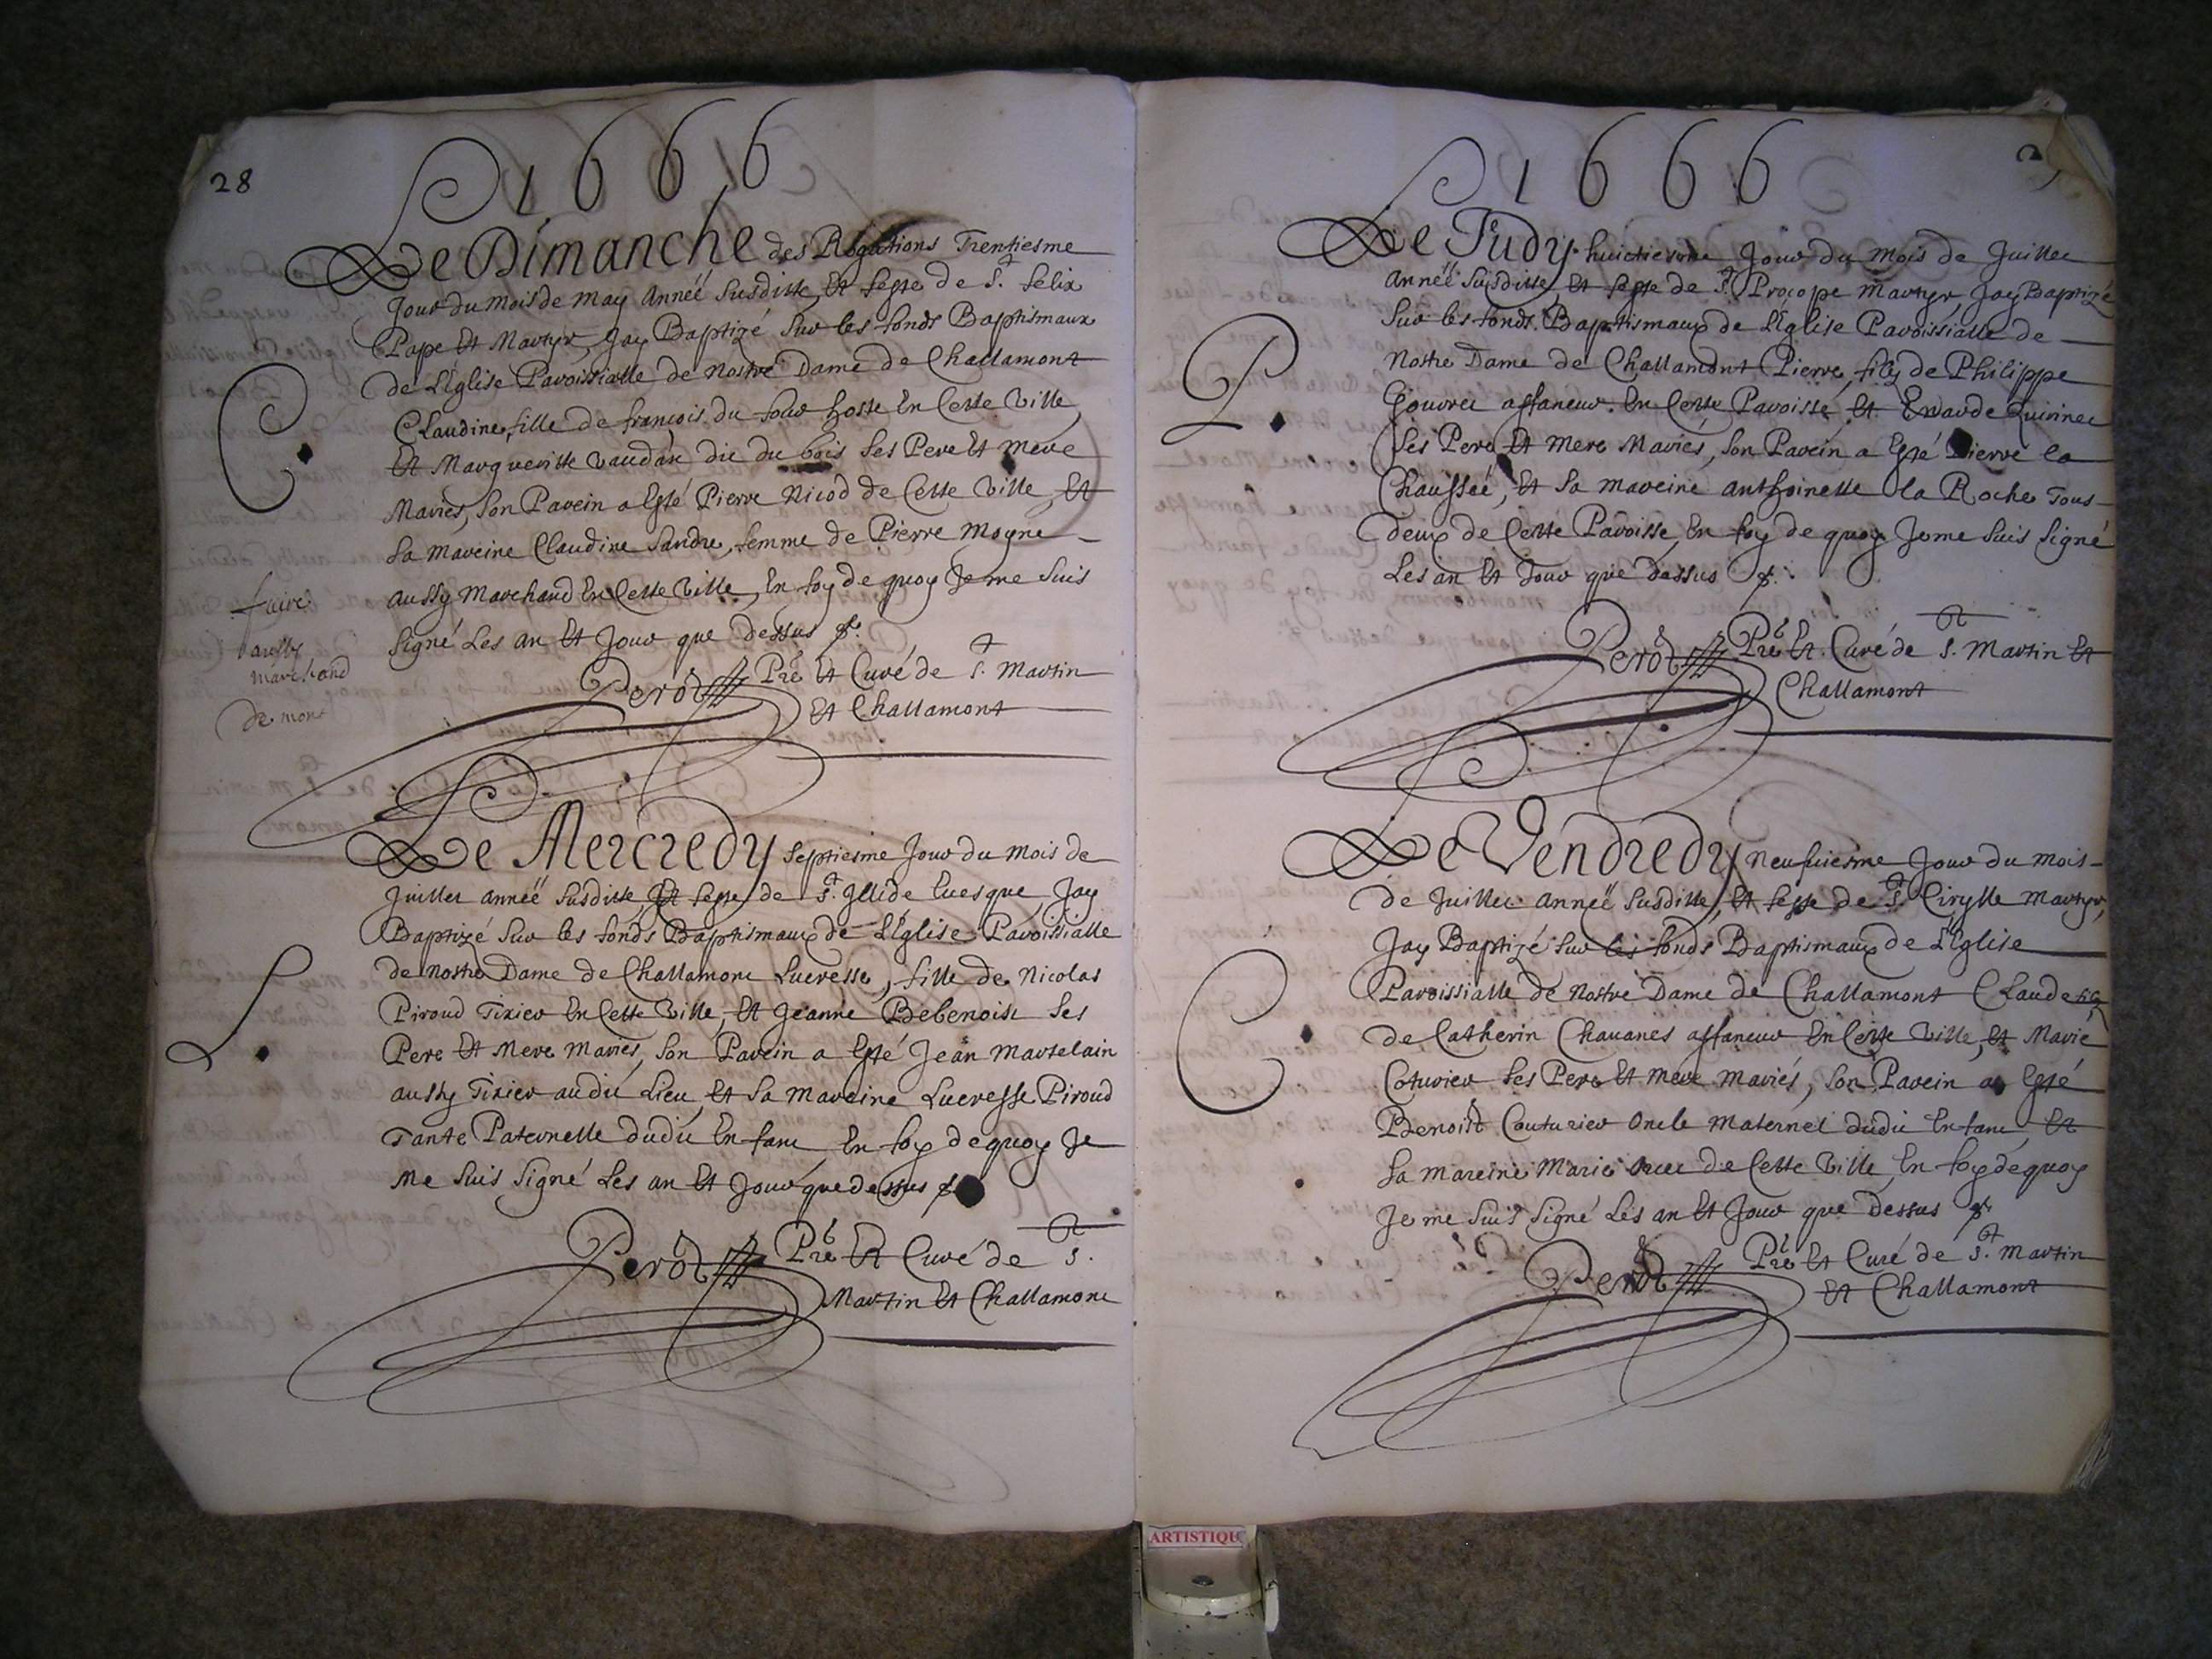 28
1666
Le Dimanche des Rogations Trentiesme
Jour du mois de may Anneë susditte, Et feste de St. felix
Pape Et Martyr, Jay Baptizé sur les fonds Baptismaux
de LEglise Paroissialle de Nostre Dame de Challamont
Claudine, fille de francois du four hoste En Cette Ville,
Et Margueritte vaudan dit du bois ses Pere Et Mere
Mariés, son Parein a Esté Pierre Nicod de Cette Ville, Et
sa mareine Claudine Sandre, femme de Pierre Moyne
aussy Marchand En Cette Ville, En foy de quoy Je me suis
signé Les an Et Jour que dessus
C.
faire
aussy
marchand
De mont
Perod Pre Et Curé de St. Martin
Et Challamont
Le Mercredy septiesme Jour du Mois de
Juillet anneë susditte Et feste de St. Jllide Evesque Jay
Baptizé sur les fonds Baptismaux de LEglise Paroissialle
de Nostre Dame de Challamont Lucresse, fille de Nicolas
Piroud Tixier En Cette Ville, Et Jeanne Bebenoist ses
Pere Et Mere Mariés, son Parein a Esté Jean Martelain
aussy Tixier audit Lieu, Et sa Mareine Lucresse Piroud
Tante Paternelle dudit Enfant En foy de quoy Je
me suis signé Les an Et Jour que dessus
L.
Perod Pre Et Curé de St.
Martin Et Challamont
1666
Le Judy huictiesme Jour du Mois de Juillet
anneë susditte, Et feste de St. Procope Martyr Jay Baptizé
sur les fonds Baptismaux de LEglise Paroissialle de
Nostre Dame de Challamont Pierre, filz de Philippe
Gouvret affaneur En Cette Paroisse, Et Erarde Quirinet
ses Pere Et Mere Mariés, son Parein a Esté Pierre la
Chausseé, Et sa mareine anthoinette la Roche Tous
deux de Cette Paroisse, En foy de quoy Je me suis signé
Les an Et Jour que dessus
P.
Perod Pre Et Curé de St. Martin Et
Challamont
Le Vendredy neufuiesme Jour du mois
de Juillet anneë susditte, Et feste de St. Cirylle martyr,
Jay Baptizé sur les fonds Baptismaux de LEglise
Paroissialle de Nostre Dame de Challamont Claude filz
de Catherin Chavanes affaneur En Cette Ville, Et Marie
Coturier ses Pere Et Mere Mariés, son Parein a Esté
Benoist Couturier Oncle Maternel dudit Enfant Et
sa Mareine Marie de Cette Ville En foy de quoy
Je me suis signé Les an Et Jour que dessus
C.
Perod Pre Et Curé de St. Martin
Et Challamont
ARTISTIQU